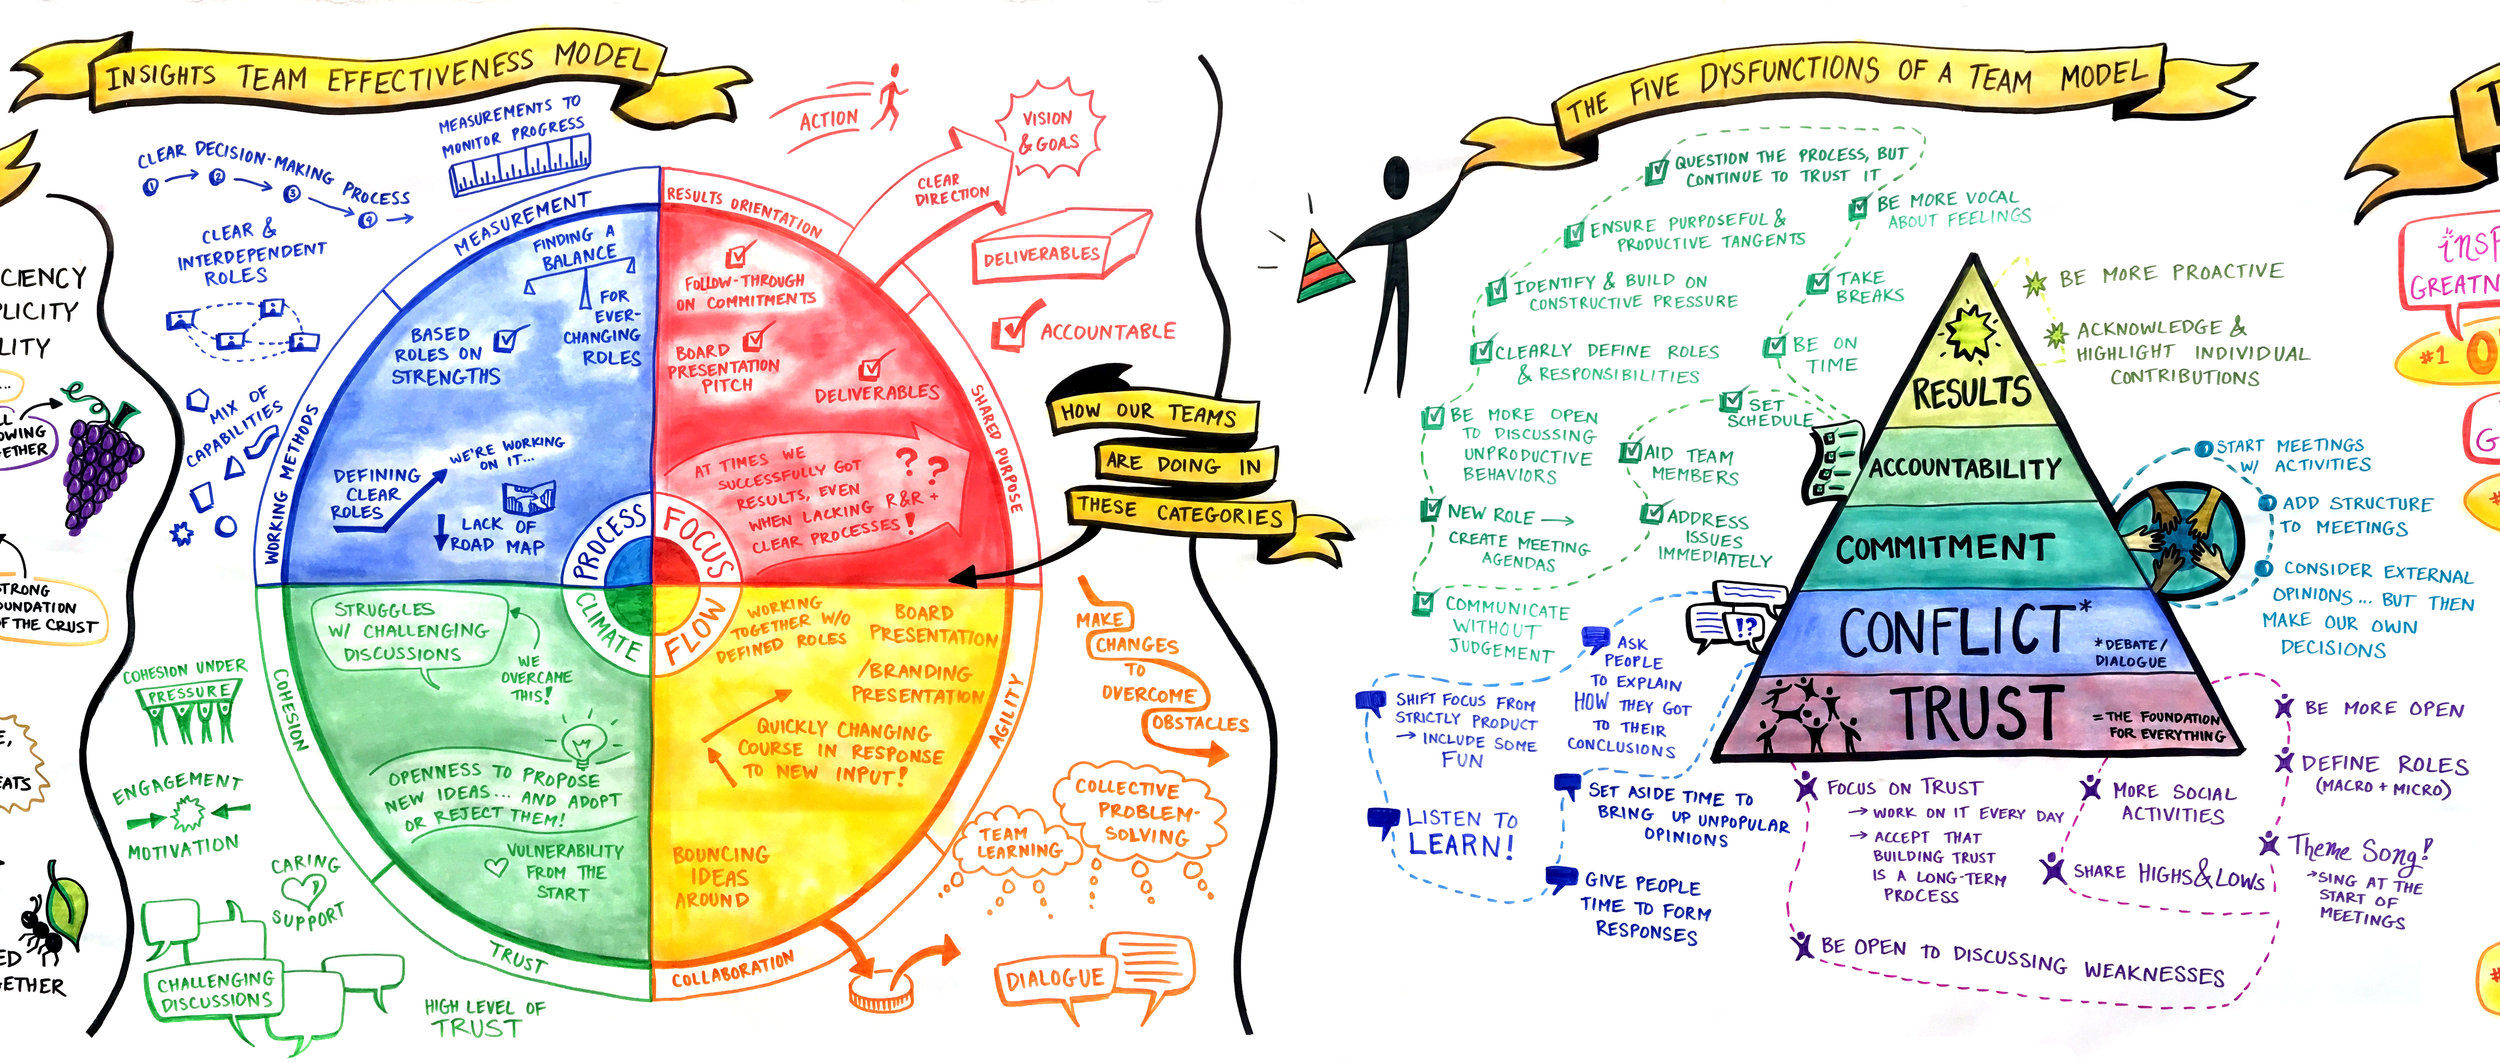 CIENCY
PLICITY
LITY
...
LL
OWING
ETHER
STRONG
OUNDATION
OF THE CRUST
E,
EATS
ED
GETHER
INSIGHTS TEAM EFFECTIVENESS MODEL
CLEAR DECISION-MAKING PROCESS
1
2
3
4
MEASUREMENTS TO
MONITOR PROGRESS
CLEAR &
INTERDEPENDENT
ROLES
MIX OF
CAPABILITIES
MEASUREMENT
WORKING METHODS
FINDING A
BALANCE
FOR
EVER-
CHANGING
ROLES
BASED
ROLES ON
STRENGTHS
DEFINING
CLEAR
ROLES
WE'RE WORKING
ON IT...
LACK OF
ROAD MAP
PROCESS
ACTION
VISION
& GOALS
CLEAR
DIRECTION
DELIVERABLES
ACCOUNTABLE
RESULTS ORIENTATION
SHARED PURPOSE
FOLLOW-THROUGH
ON COMMITMENTS
BOARD
PRESENTATION
PITCH
DELIVERABLES
AT TIMES WE
SUCCESSFULLY GOT
RESULTS, EVEN
WHEN LACKING R&R +
CLEAR PROCESSES!
??
FOCUS
HOW OUR TEAMS
ARE DOING IN
THESE CATEGORIES
COHESION UNDER
PRESSURE
ENGAGEMENT
MOTIVATION
CARING
SUPPORT
CHALLENGING
DISCUSSIONS
HIGH LEVEL OF
TRUST
COHESION
TRUST
STRUGGLES
W/ CHALLENGING
DISCUSSIONS
WE
OVERCAME
THIS!
OPENNESS TO PROPOSE
NEW IDEAS... AND ADOPT
OR REJECT THEM!
VULNERABILITY
FROM THE
START
CLIMATE
FLOW
WORKING
TOGETHER W/O
DEFINED ROLES
BOARD
PRESENTATION
/BRANDING
PRESENTATION
QUICKLY CHANGING
COURSE IN RESPONSE
TO NEW INPUT!
BOUNCING
IDEAS
AROUND
AGILITY
COLLABORATION
MAKE
CHANGES
TO
OVERCOME
OBSTACLES
COLLECTIVE
PROBLEM-
SOLVING
TEAM
LEARNING
DIALOGUE
THE FIVE DYSFUNCTIONS OF A TEAM MODEL
QUESTION THE PROCESS, BUT
CONTINUE TO TRUST IT
BE MORE VOCAL
ABOUT FEELINGS
ENSURE PURPOSEFUL &
PRODUCTIVE TANGENTS
IDENTIFY & BUILD ON
CONSTRUCTIVE PRESSURE
TAKE
BREAKS
CLEARLY DEFINE ROLES
& RESPONSIBILITIES
BE ON
TIME
BE MORE OPEN
TO DISCUSSING
UNPRODUCTIVE
BEHAVIORS
SET
SCHEDULE
AID TEAM
MEMBERS
NEW ROLE →
CREATE MEETING
AGENDAS
ADDRESS
ISSUES
IMMEDIATELY
COMMUNICATE
WITHOUT
JUDGEMENT
RESULTS
ACCOUNTABILITY
COMMITMENT
CONFLICT*
*DEBATE/
DIALOGUE
!?
TRUST
=THE FOUNDATION
FOR EVERYTHING
BE MORE PROACTIVE
ACKNOWLEDGE &
HIGHLIGHT INDIVIDUAL
CONTRIBUTIONS
START MEETINGS
W/ ACTIVITIES
ADD STRUCTURE
TO MEETINGS
CONSIDER EXTERNAL
OPINIONS... BUT THEN
MAKE OUR OWN
DECISIONS
ASK
PEOPLE
TO EXPLAIN
HOW THEY GOT
TO THEIR
CONCLUSIONS
SHIFT FOCUS FROM
STRICTLY PRODUCT
→ INCLUDE SOME
FUN
LISTEN TO
LEARN!
SET ASIDE TIME TO
BRING UP UNPOPULAR
OPINIONS
GIVE PEOPLE
TIME TO FORM
RESPONSES
FOCUS ON TRUST
→ WORK ON IT EVERY DAY
→ ACCEPT THAT
BUILDING TRUST
IS A LONG-TERM
PROCESS
MORE SOCIAL
ACTIVITIES
SHARE HIGHS & LOWS
BE OPEN TO DISCUSSING WEAKNESSES
BE MORE OPEN
DEFINE ROLES
(MACRO + MICRO)
THEME SONG!
→SING AT THE
START OF
MEETINGS
T
insp
GREATN
#1 O
G
#
#